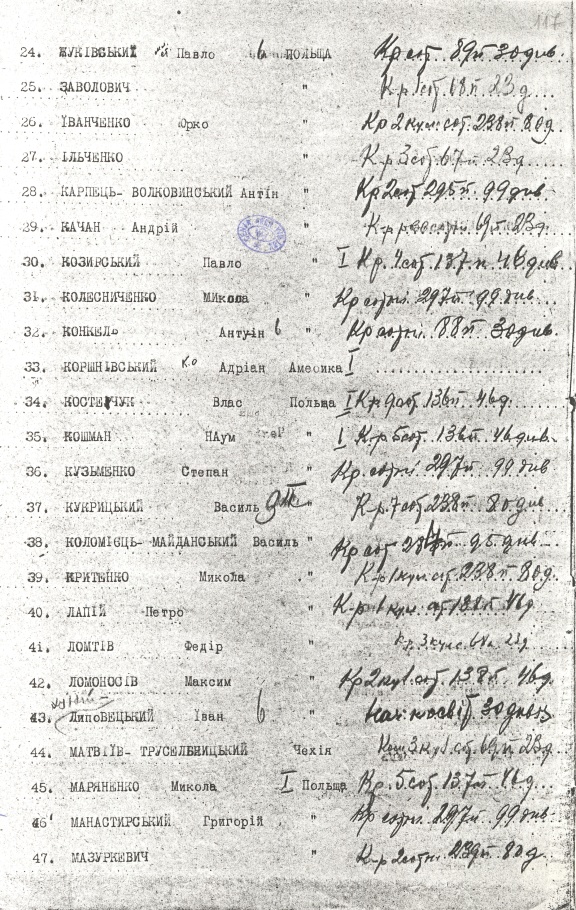 117
24. ЖУКІВСЬКИЙ Павло ПОЛЬЩА Кр сот. 89п 30 див.
25. ЗАВОЛОВИЧ " К.р. 1 сот. 68п 23 д.
26. ЇВАНЧЕНКО Юрко " Кр 2 кул. сот. 238п 80д
27. ІЛЬЧЕНКО " К.р. 3 сот. 67п. 23д.
28. КАРПЕЦЬ- ВОЛКОВИНСЬКИЙ Антін " Кр 2 сот 295п 99 див
29. КАЧАН Андрій " К.р. 69п. 23д.
30. КОЗИРСЬКИЙ Павло " I Кр. 4 сот. 137.п. 46 див.
31. КОЛЕСНИЧЕНКО Микола " Кр сотн. 297п. 99 див.
32. КОНКЕЛЬ Антін " Кр сотн. 88п 30 див.
33. КОРШНІВСЬКИЙ ко Адріан Америка I
34. КОСТЕЧУК Влас Польща I К.р. 9 сот. 136п 46д.
35. КОШМАН НАум " I К.р. 5 сот. 136п. 46 див.
36. КУЗЬМЕНКО Степан " Кр. сотн. 297п 99 див
37. КУКРИЦЬКИЙ Василь " К.р. 7 сот. 238п. 80 див
38. КОЛОМІЄЦЬ- МАЙДАНСЬКИЙ Василь " Кр сот 95 див.
39. КРИТЕНКО Микола " К.р. 1 кул. сот. 238п 80д.
40. ЛАПІЙ Петро " К-р. 1 кул. 138п 46д
41. ЛОМТІВ Федір " К.р. 3 кул. 23д
42. ЛОМОНОСІВ Максим " Кр 2 кул. сот. 138п. 46д.
43. ЛИПОВЕЦЬКИЙ Іван " 30 див
44. МАТВІЇВ- ТРУСЕЛЬНИЦЬКИЙ Чехія 3 кул. сот. 69п. 23д.
45. МАРЯНЕНКО Микола I Польща Кр. 5 сот. 137п. 46д.
46. МАНАСТИРСЬКИЙ Григорій " Кр сотн. 297п 99 див.
47. МАЗУРКЕВИЧ " К-р 2 сотн. 239п 80д.